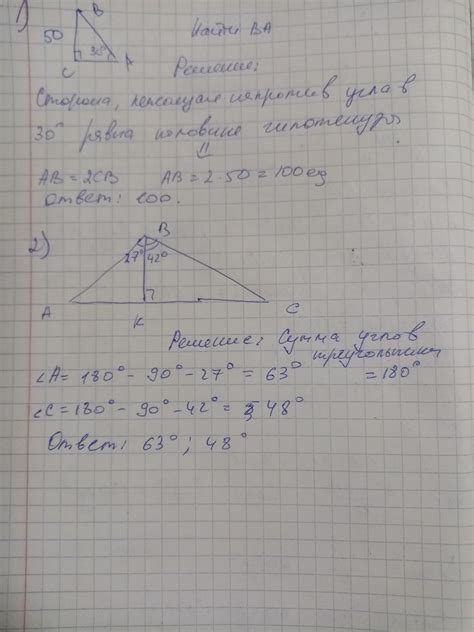 1)
B
50
30°
C
A
Найти BA
Решение:
Сторона, лежащая напротив угла в
30° равна половине гипотенузы
⇓
AB = 2CB AB = 2·50 = 100 ед
Ответ: 100.
2)
B
27° 42°
A
K
C
Решение: Сумма углов
треугольника
∠A = 180° - 90° - 27° = 63° = 180°
∠C = 180° - 90° - 42° = 48°
Ответ: 63°; 48°